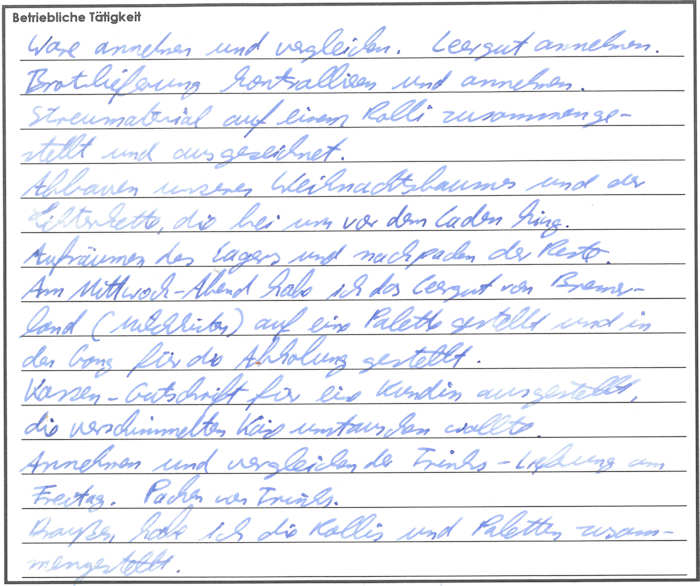 Betriebliche Tätigkeit
Ware annehmen und vergleichen. Leergut annehmen.
Brotlieferung kontrollieren und annehmen.
Streumaterial auf einem Rolli zusammenge-
stellt und ausgezeichnet.
Abbauen unseres Weihnachtsbaumes und der
Lichterkette, die bei uns vor dem Laden hing.
Aufräumen des Lagers und nachpacken der Reste.
Am Mittwoch-Abend habe ich das Leergut von Bremer-
land (Milchkisten) auf eine Palette gestellt und in
den Gang für die Abholung gestellt.
Kassen-Gutschrift für eine Kundin ausgestellt,
die verschimmelten Käse umtauschen wollte.
Annehmen und vergleichen der Trinks-Lieferung am
Freitag. Packen von Trinks.
Draußen habe ich die Rollis und Paletten zusam-
mengestellt.